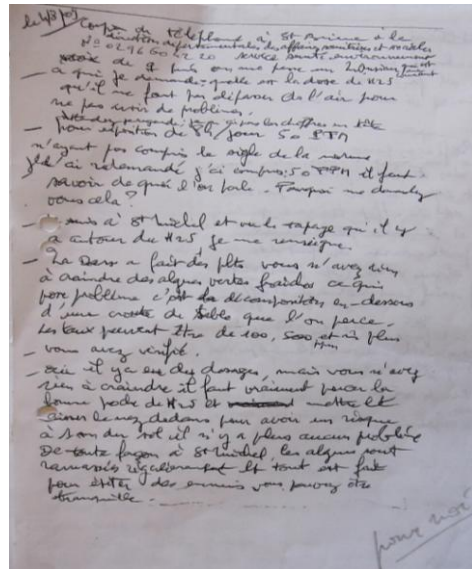 le 4/8/09 Coup de téléphone à St Brieuc à la
Direction départementale des affaires sanitaires et sociales
N° 02 96 60 42 20 service santé environnement
on me passe un
_ à qui je demande quelle est la dose de H2S
qu'il ne faut pas dépasser dans l'air pour
ne pas avoir de problèmes.
les chiffres en tête
_ pour exposition de 8h/jour 50 PPM
n'ayant pas compris le sigle de la norme
je l'ai redemandé j'ai compris 50 PPM il faut
savoir de quoi l'on parle. Pourquoi me demandez
vous cela ?
_ Je suis à St Michel et vu le tapage qu'il y
a autour du H2S, je me renseigne.
_ La Dass a fait des vous n'avez rien
à craindre des algues vertes fraîches ce qui
pose problème c'est la décomposition en-dessous
d'une croûte de sable que l'on perce.
Les taux peuvent être de 100, 500 et plus
ppm
_ vous avez vérifié.
_ oui il y a eu des dosages, mais vous n'avez
rien à craindre il faut vraiment percer la
bonne poche de H2S et mettre le
nez dedans pour avoir un risque
à 1 m du sol il n'y a plus aucun problème
De toute façon à St Michel, les algues sont
ramassées régulièrement et tout est fait
pour éviter des ennuis vous pouvez être
tranquille.
pour moi